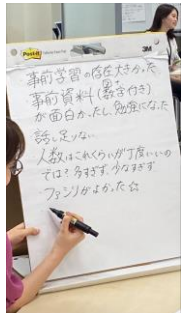 Post-it
3M
事前学習の存在大きかった
事前資料(数字付き)
が面白かったし、勉強になった
話し足りない
人数はこれくらいが丁度いいの
では?多すぎず、少なすぎず
ファシリがよかった☆